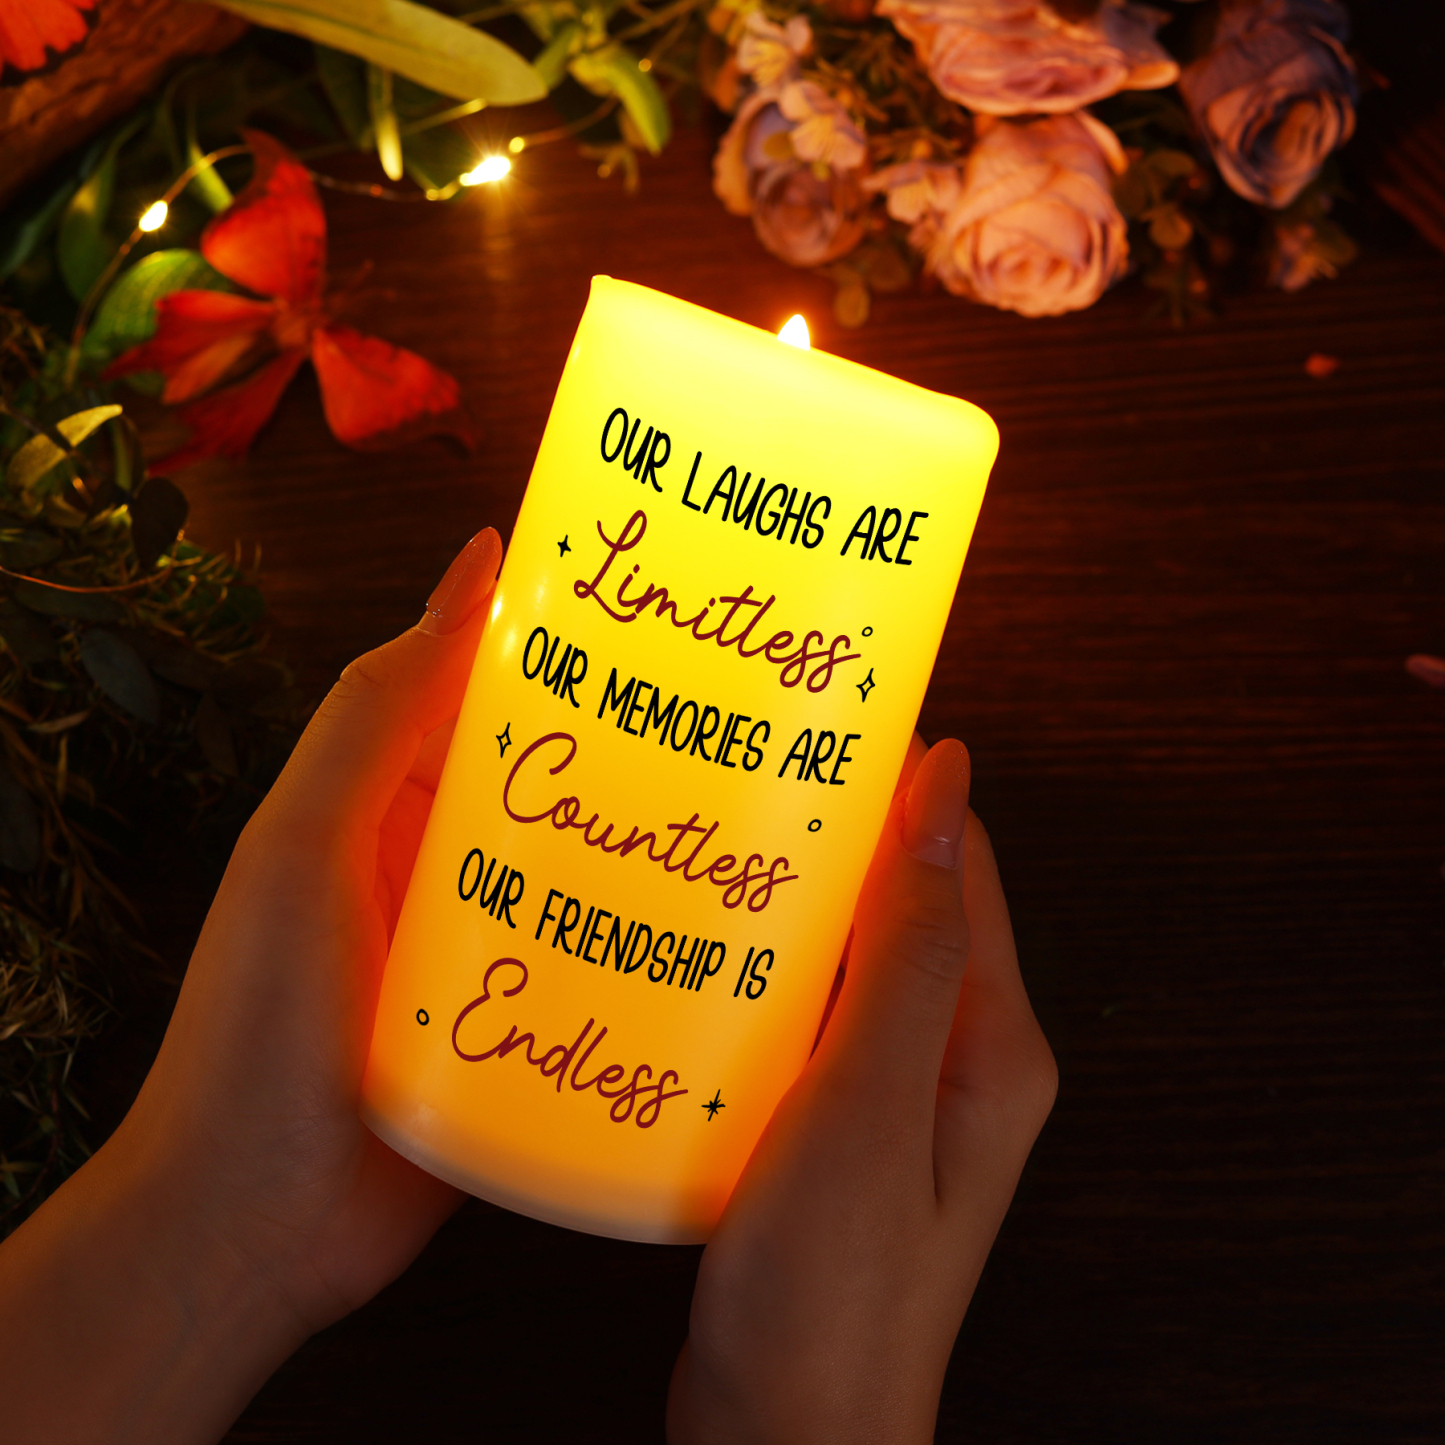 OUR LAUGHS ARE
Limitless
OUR MEMORIES ARE
Countless
OUR FRIENDSHIP IS
Endless